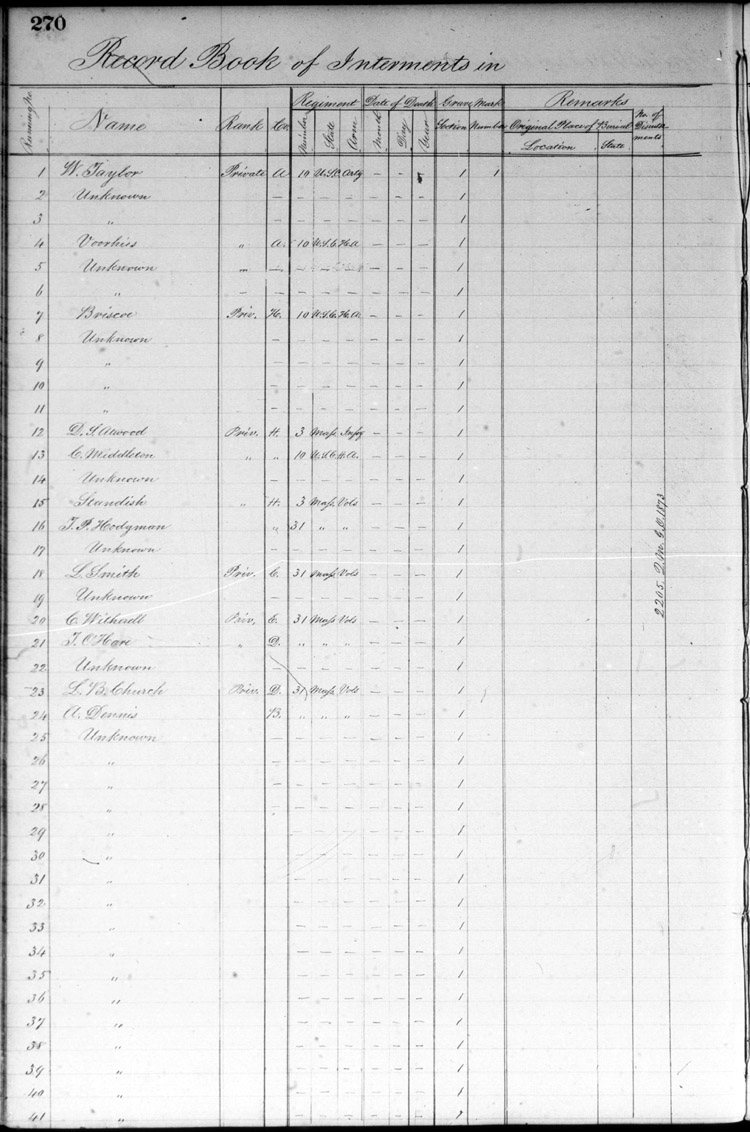 270
Record Book of Interments in
Running No. Name Rank Co. Regiment Date of Death Grave Mark Remarks
Number State Arm Month Day Year Section Number Original Place of Burial No. of Disinterments
Location State
1 W. Taylor Private A 10 Arty 1 1
2 Unknown — — — — — — — 1
3 " — — — — — — — 1
4 Voorhies " A. 10 U.S.C. H.A. — — — 1
5 Unknown " — — — — — — — 1
6 " — — — — — — — 1
7 Briscoe Priv. H. 10 U.S.C. H.A. — — — 1
8 Unknown — — — — — — — 1
9 " — — — — — — — 1
10 " — — — — — — — 1
11 " — — — — — — — 1
12 D. S. Atwood Priv. H. 3 Mass. Infy — — — 1
13 C. Middleton " " 10 U.S.C. H.A. — — — 1
14 Unknown — — — — — — — 1
15 Standish " H. 3 Mass. Vols — — — 1
16 T. P. Hodgman " 31 " " — — — 1
17 Unknown — — — — — — — 1
18 L. Smith Priv. C. 31 Mass. Vols — — — 1
19 Unknown — — — — — — — 1
20 C. Witherell Priv. E. 31 Mass Vols — — — 1
21 T. O'Hare " D. " " " — — — 1
22 Unknown — — — — — — — 1
23 L. B. Church Priv. D. 31 Mass. Vols — — — 1
24 A. Dennis B. " " " — — — 1
25 Unknown — — — — — — — 1
26 " — — — — — — 1
27 " — — — — — — 1
28 " — — — — — — 1
29 " — — — — — — 1
30 " — — — — — — 1
31 " — — — — — — 1
32 " — — — — — — 1
33 " — — — — — — 1
34 " — — — — — — 1
35 " — — — — — — 1
36 " — — — — — — 1
37 " — — — — — — 1
38 " — — — — — — 1
39 " — — — — — — 1
40 " — — — — — — 1
41 " — — — — — — 1
2205. Q.M.G.O. 1873